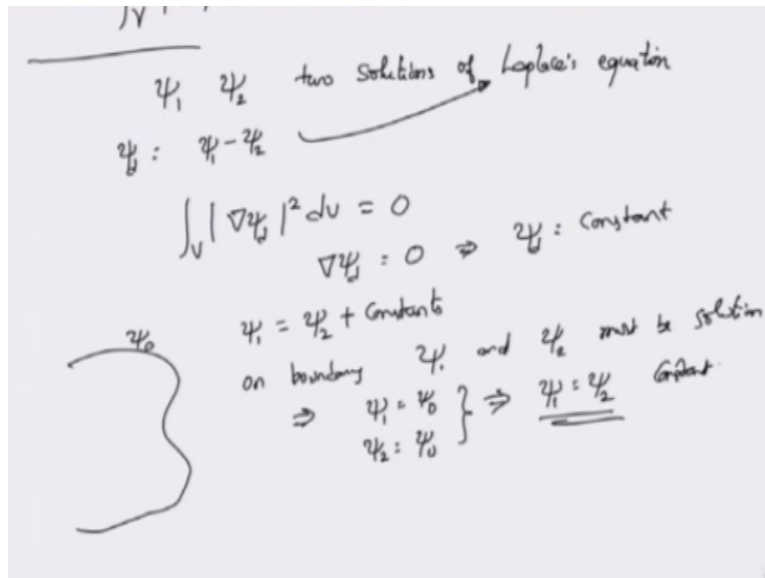 ψ₁ ψ₂ two Solutions of Laplace's equation
ψ_d : ψ₁-ψ₂
∫_V |∇ψ_d|² dv = 0
∇ψ_d = 0 ⇒ ψ_d = Constant
ψ₁ = ψ₂ + Constants
ψ₀
on boundary ψ₁ and ψ₂ must be solution
⇒ ψ₁ = ψ₀ } ⇒ ψ₁ = ψ₂
ψ₂ = ψ₀